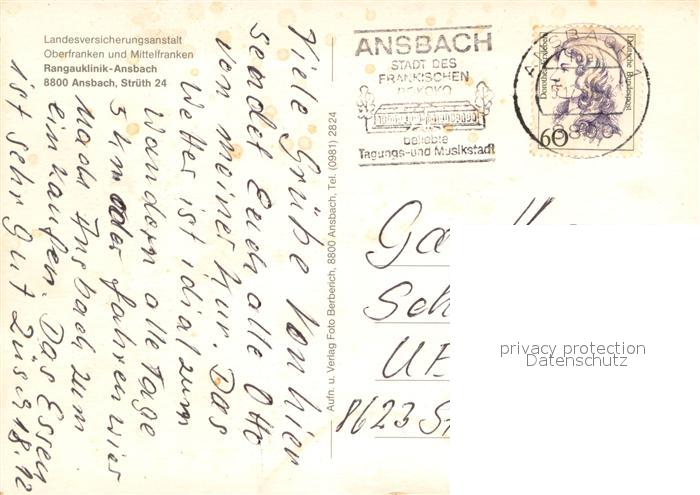 Landesversicherungsanstalt
Oberfranken und Mittelfranken
Rangauklinik-Ansbach
8800 Ansbach, Strüth 24
Viele Grüße von hier
sendet Euch alle Otto
von meiner Kur. Das
Wetter ist idial zum
Wandern alle Tage
5 km oder fahren wir
nach Ansbach zum
einkaufen. Das Essen
ist sehr gut 18.12
Aufn. u. Verlag Foto Berberich, 8800 Ansbach, Tel. (0981) 2824
ANSBACH
STADT DES
FRÄNKISCHEN
ROKOKO
beliebte
Tagungs- und Musikstadt
ANSBACH
8800
Deutsche Bundespost
60
Sch
8623
privacy protection
Datenschutz